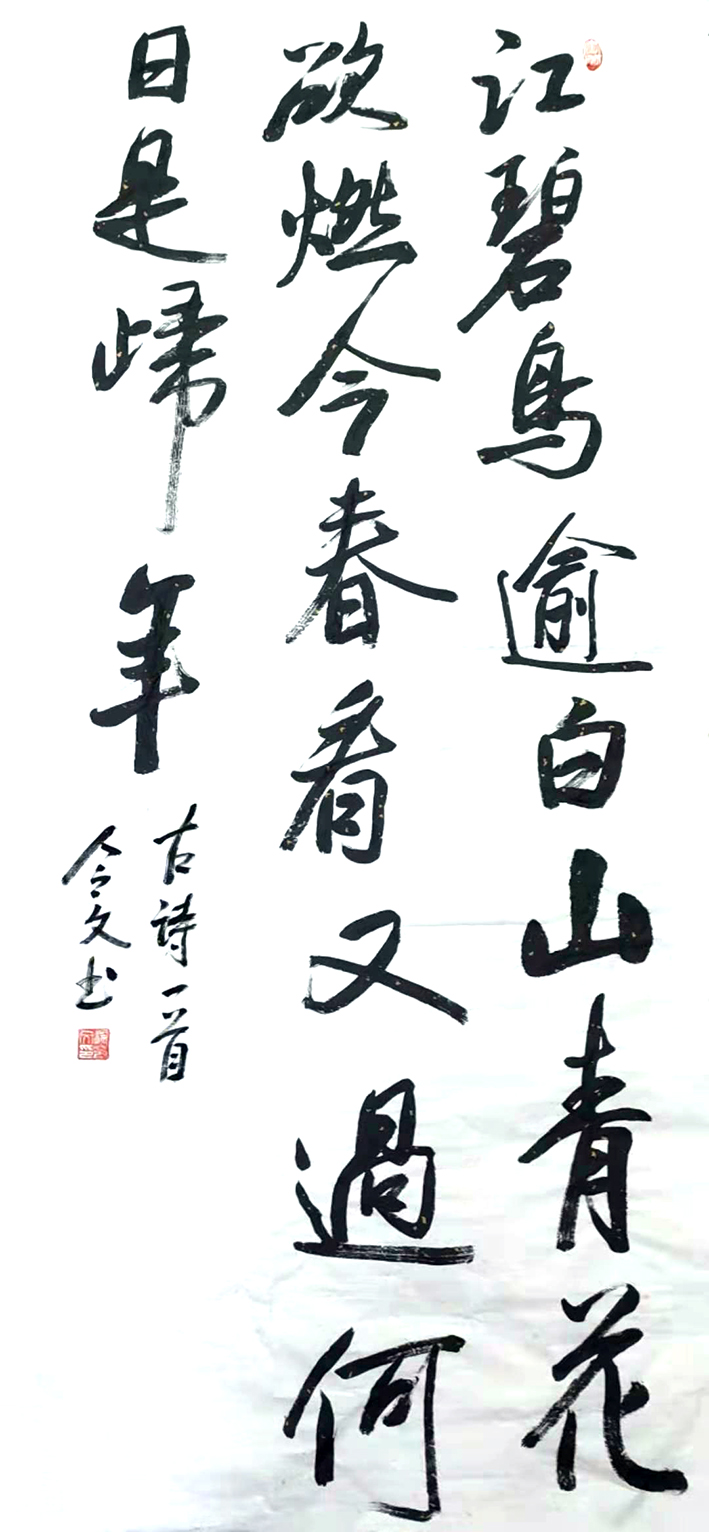 江碧鳥逾白山青花
欲燃今春看又過何
日是歸年
古詩一首
令文书